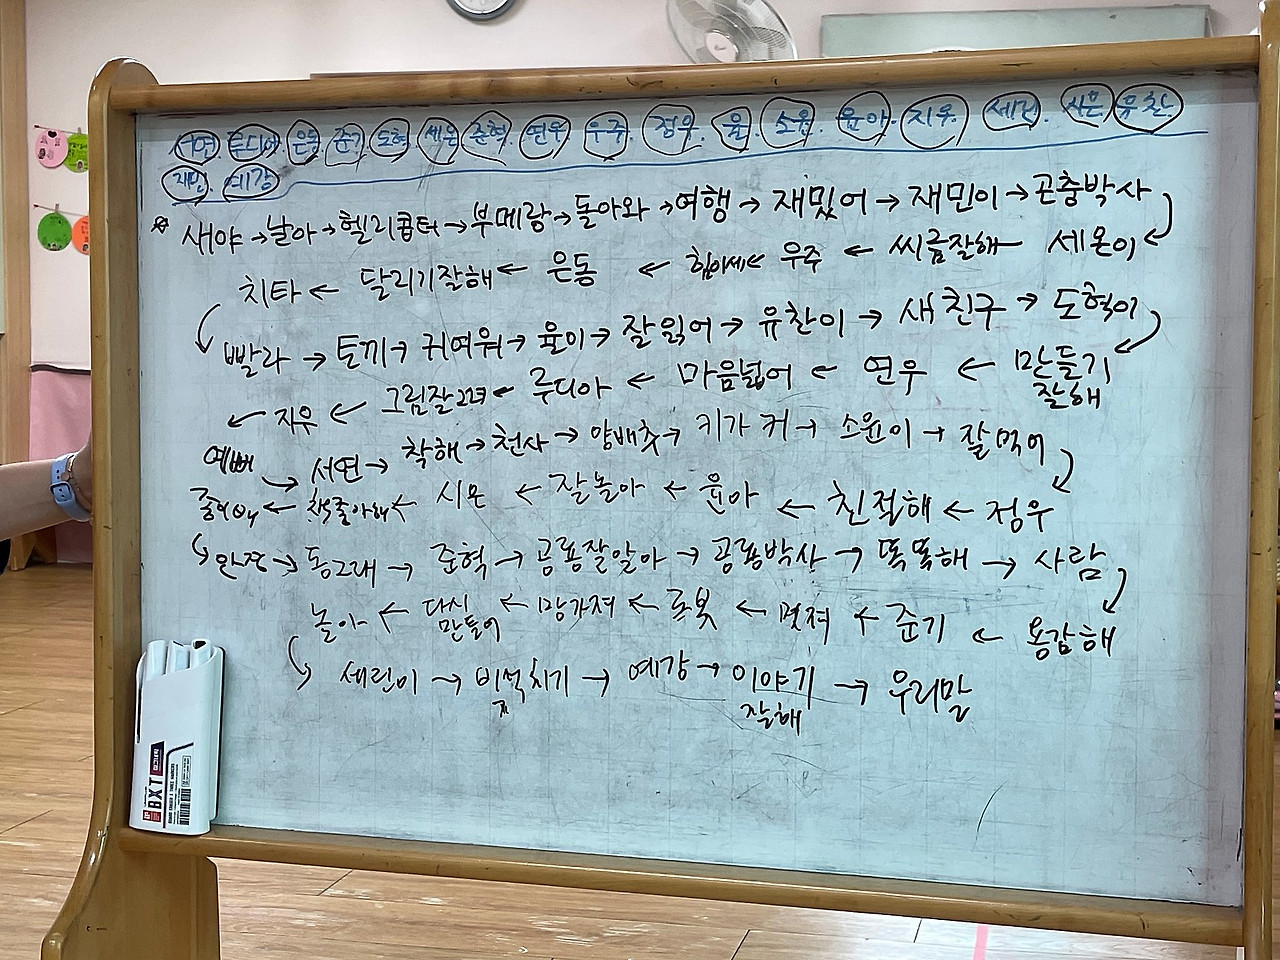 서연. 루디아 은동 준기 도혁 세온 준혁 연우 우주. 정우. 율. 소윤. 윤아. 지우. 세린 시온 유찬.
재민. 예강
새야→날아→헬리콥터→부메랑→돌아와→여행→재밌어→재민이→곤충박사
치타←달리기잘해←은동←힘이세←우주←씨름잘해 세온이
빨라→토끼→귀여워→율이→잘읽어→유찬이→새친구→도혁이
←지우←그림잘그려←루디아←마음넓어←연우←만들기
잘해
예뻐→서연→착해→천사→양배추→키가 커→소윤이→잘먹어
종이접어←책좋아해←시온←잘놀아←윤아←친절해←정우
안경→동그래→준혁→공룡잘알아→공룡박사→똑똑해→사람
놀아←다시←망가져←로봇←멋져←준기←용감해
만들어
세린이→비석치기→예강→이야기→우리말
잘해
BXT